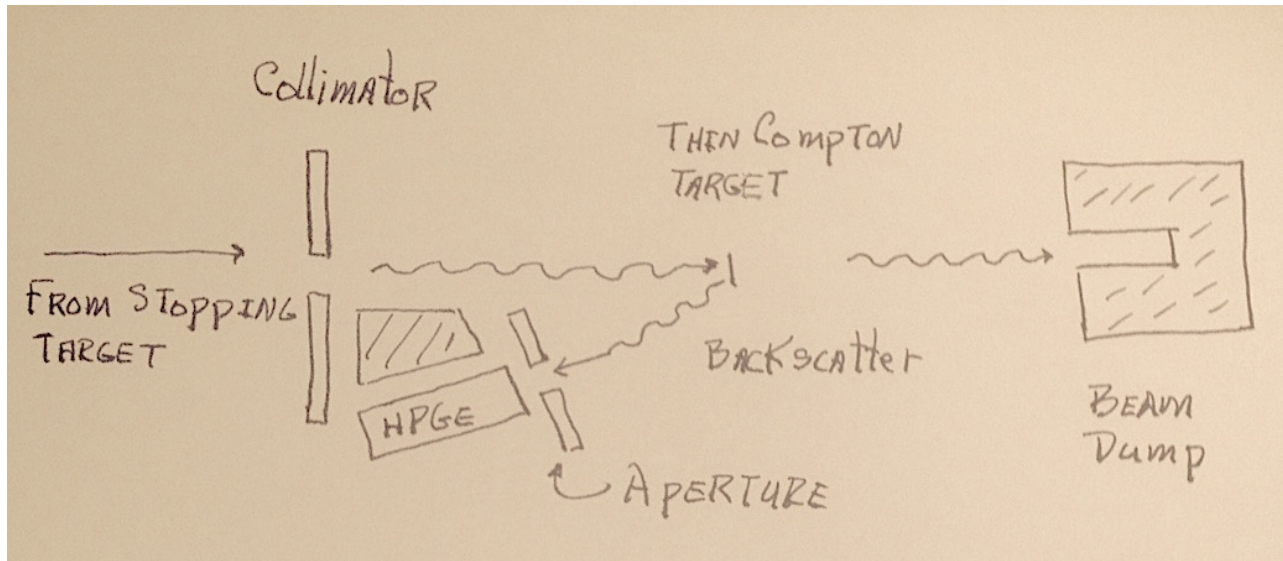 Collimator
THIN COMPTON
TARGET
FROM STOPPING
TARGET
BACKSCATTER
HPGE
BEAM
Dump
APERTURE